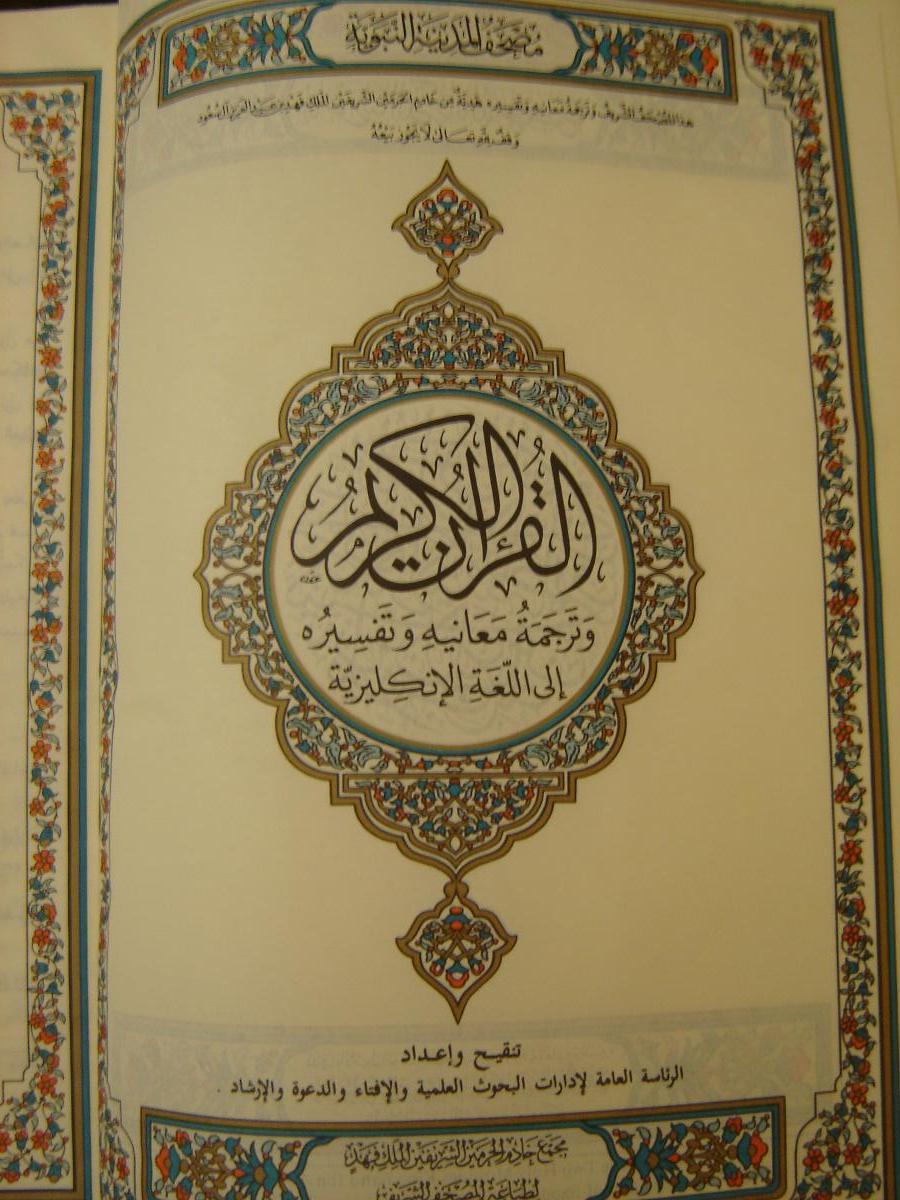 مصحف المدينة النبوية
هذا المصحف الشريف وترجمة معانيه وتفسيره هدية من خادم الحرمين الشريفين الملك فهد بن عبد العزيز آل سعود
وقف لله تعالى لا يجوز بيعه
القرآن الكريم
وَتَرجَمَةُ مَعَانيهِ وَتَفسِيرُه
إلى اللّغَةِ الإنكليزيّة
تنقيح وإعداد
الرئاسة العامة لإدارات البحوث العلمية والإفتاء والدعوة والإرشاد .
مجمع خادم الحرمين الشريفين الملك فهد
لطباعة المصحف الشريف